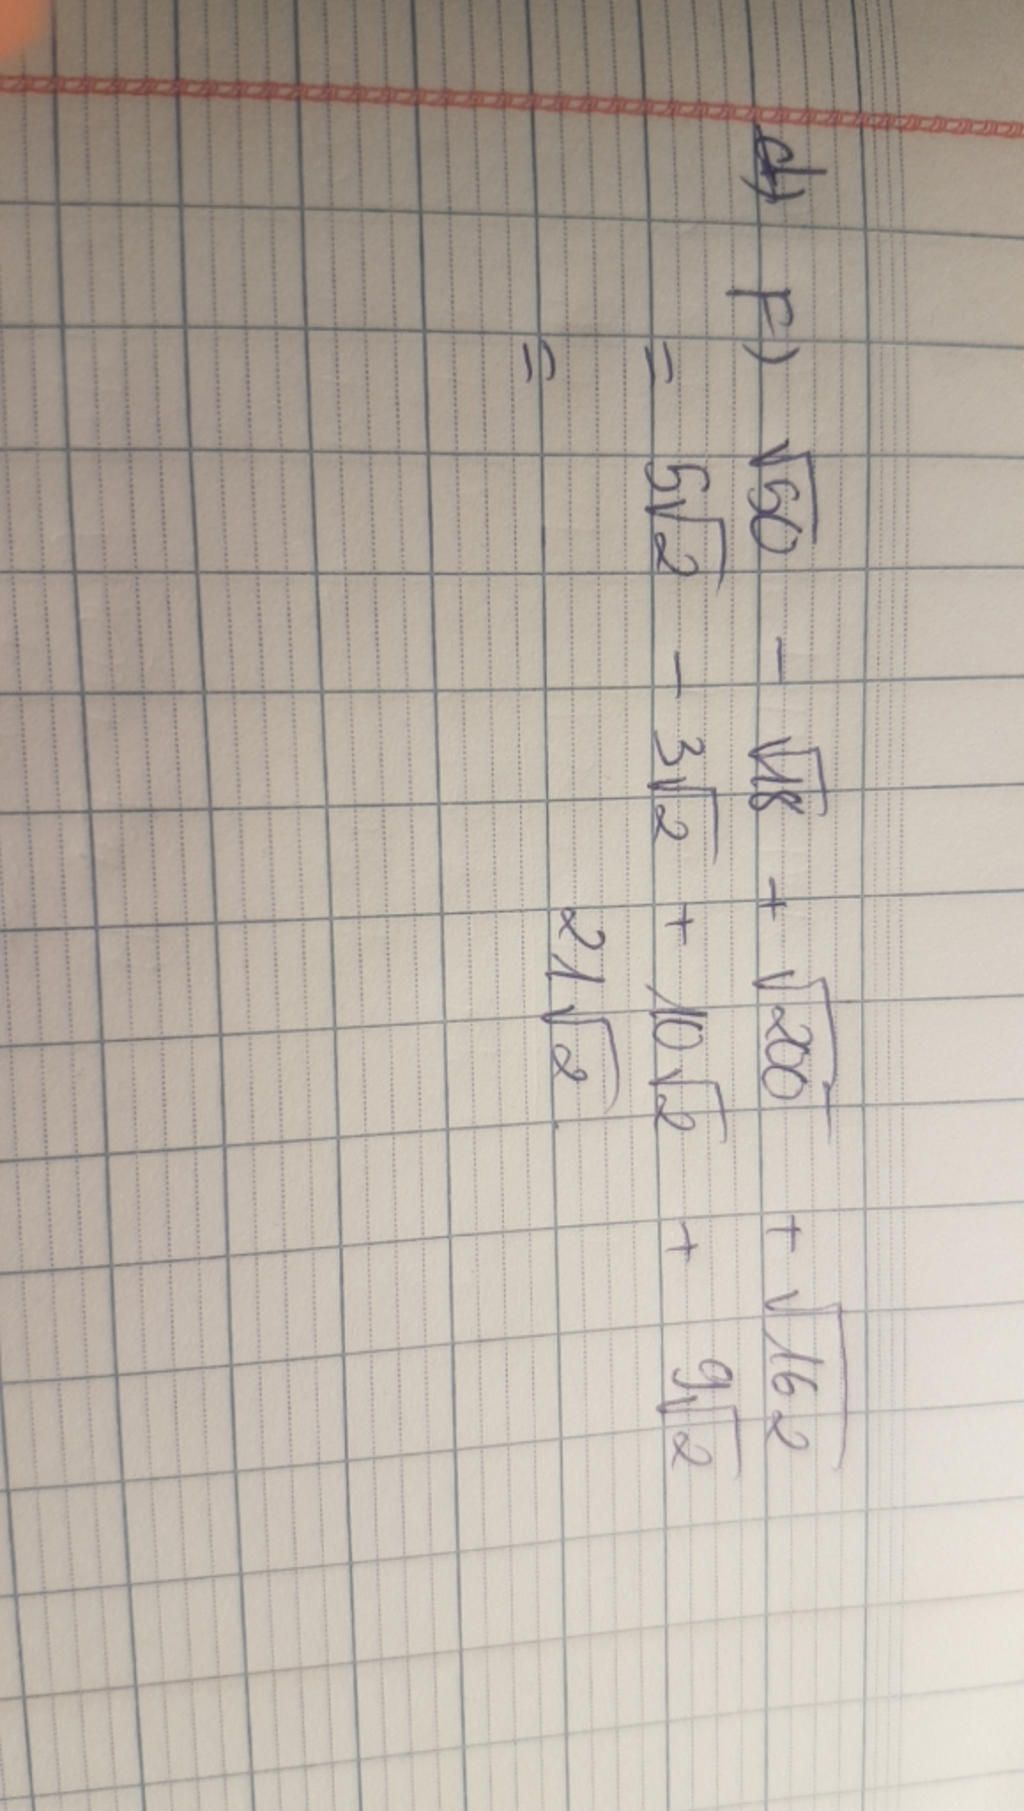 d) F) √50 - √18 + √200 + √162
= 5√2 - 3√2 + 10√2 + 9√2
= 21√2